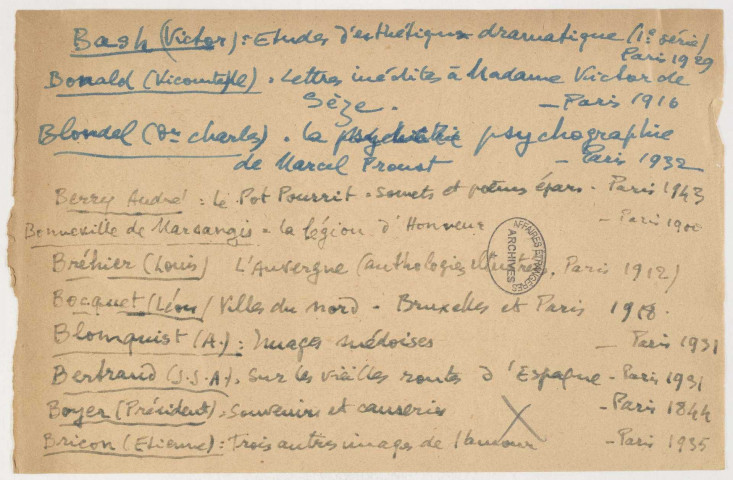 Bash (Victor) : Etudes d'esthétique dramatique (1e série)
Paris 1929
Bonald (Vicomte de) . Lettres inédites à Madame Victor de
Sèze . — Paris 1916
Blondel (Dr Charles) . La psychographie
de Marcel Proust — Paris 1932
Berry André : Le Pot Pourrit . sonnets et poèmes épars . Paris 1943
Bonneville de Marsangis . La Légion d'Honneur — Paris 1900
Bréhier (Louis) L'Auvergne (anthologies illustrées, Paris 1912)
Bocquet (Léon) Villes du nord . Bruxelles et Paris 1918.
Blomquist (A.) : Images suédoises — Paris 1931
Bertrand (J.J.A). Sur les vieilles routes d'Espagne - Paris 1931
Boyer (Président), Souvenirs et causeries - Paris 1844
Bricon (Etienne) : Trois autres images de l'amour — Paris 1935
AFFAIRES ETRANGERES
ARCHIVES